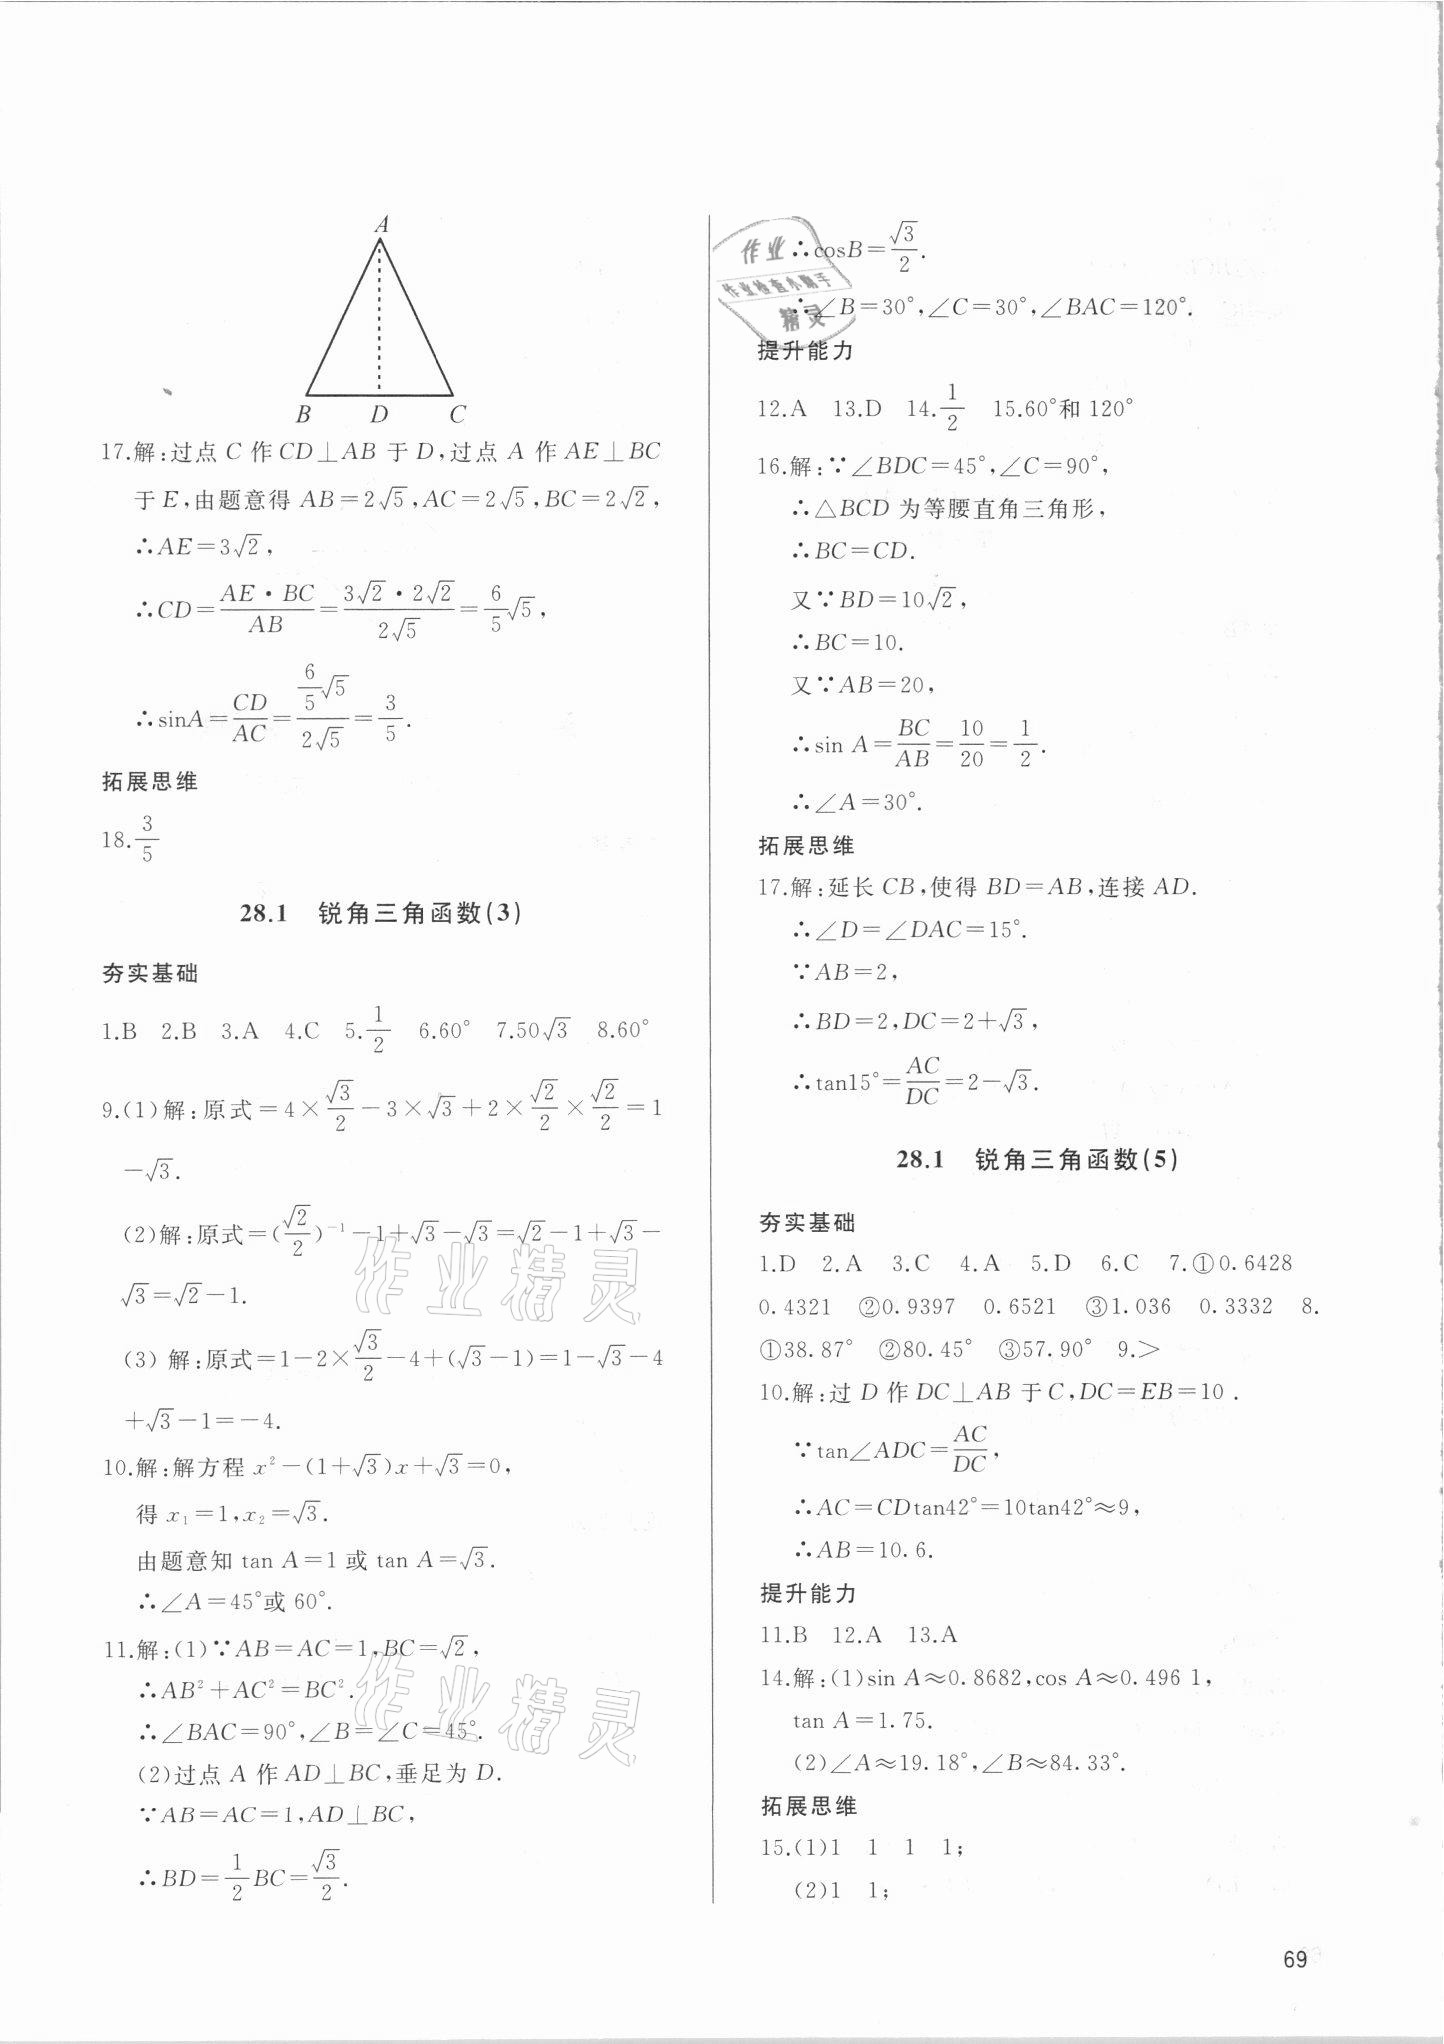 A
B D C
17.解:过点 C 作 CD⊥AB 于 D,过点 A 作 AE⊥BC
于 E,由题意得 AB=2√5,AC=2√5,BC=2√2,
∴AE=3√2,
∴CD=AE·BC/AB=3√2·2√2/2√5=6/5√5,
∴sinA=CD/AC=6/5√5/2√5=3/5.
拓展思维
18.3/5
28.1 锐角三角函数(3)
夯实基础
1.B 2.B 3.A 4.C 5.1/2 6.60° 7.50√3 8.60°
9.(1)解:原式=4×√3/2-3×√3+2×√2/2×√2/2=1
-√3.
(2)解:原式=(√2/2)⁻¹-1+√3-√3=√2-1+√3-
√3=√2-1.
(3) 解:原式=1-2×√3/2-4+(√3-1)=1-√3-4
+√3-1=-4.
10.解:解方程 x²-(1+√3)x+√3=0,
得 x₁=1,x₂=√3.
由题意知 tan A=1 或 tan A=√3.
∴∠A=45°或 60°.
11.解:(1)∵AB=AC=1,BC=√2,
∴AB²+AC²=BC².
∴∠BAC=90°,∠B=∠C=45°.
(2)过点 A 作 AD⊥BC,垂足为 D.
∵AB=AC=1,AD⊥BC,
∴BD=1/2BC=√3/2.
∴cosB=√3/2.
∴∠B=30°,∠C=30°,∠BAC=120°.
提升能力
12.A 13.D 14.1/2 15.60°和 120°
16.解:∵∠BDC=45°,∠C=90°,
∴△BCD 为等腰直角三角形,
∴BC=CD.
又∵BD=10√2,
∴BC=10.
又∵AB=20,
∴sin A=BC/AB=10/20=1/2.
∴∠A=30°.
拓展思维
17.解:延长 CB,使得 BD=AB,连接 AD.
∴∠D=∠DAC=15°.
∵AB=2,
∴BD=2,DC=2+√3,
∴tan15°=AC/DC=2-√3.
28.1 锐角三角函数(5)
夯实基础
1.D 2.A 3.C 4.A 5.D 6.C 7.①0.6428
0.4321 ②0.9397 0.6521 ③1.036 0.3332 8.
①38.87° ②80.45° ③57.90° 9.>
10.解:过 D 作 DC⊥AB 于 C,DC=EB=10.
∵tan∠ADC=AC/DC,
∴AC=CDtan42°=10tan42°≈9,
∴AB=10.6.
提升能力
11.B 12.A 13.A
14.解:(1)sin A≈0.8682,cos A≈0.496 1,
tan A=1.75.
(2)∠A≈19.18°,∠B≈84.33°.
拓展思维
15.(1)1 1 1 1;
(2)1 1;
69
作业
作业检查小助手
精灵
作业精灵
作业精灵